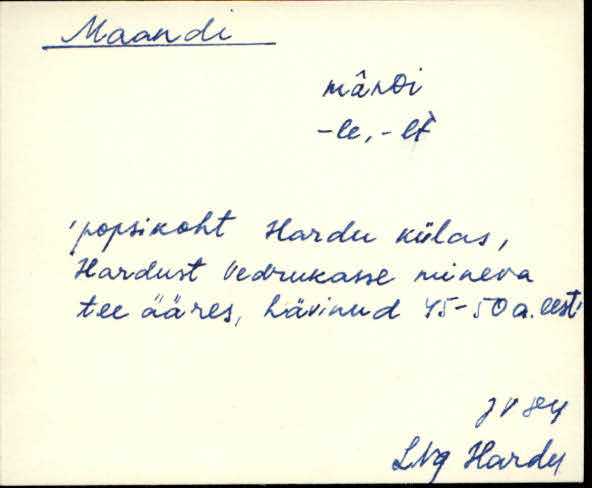 Maandi
mânDi
-le, -lt
'popsikoht Hardu külas,
Hardust Vedrukasse mineva
tee ääres, hävinud 45-50 a. eest'
LNg Hardu